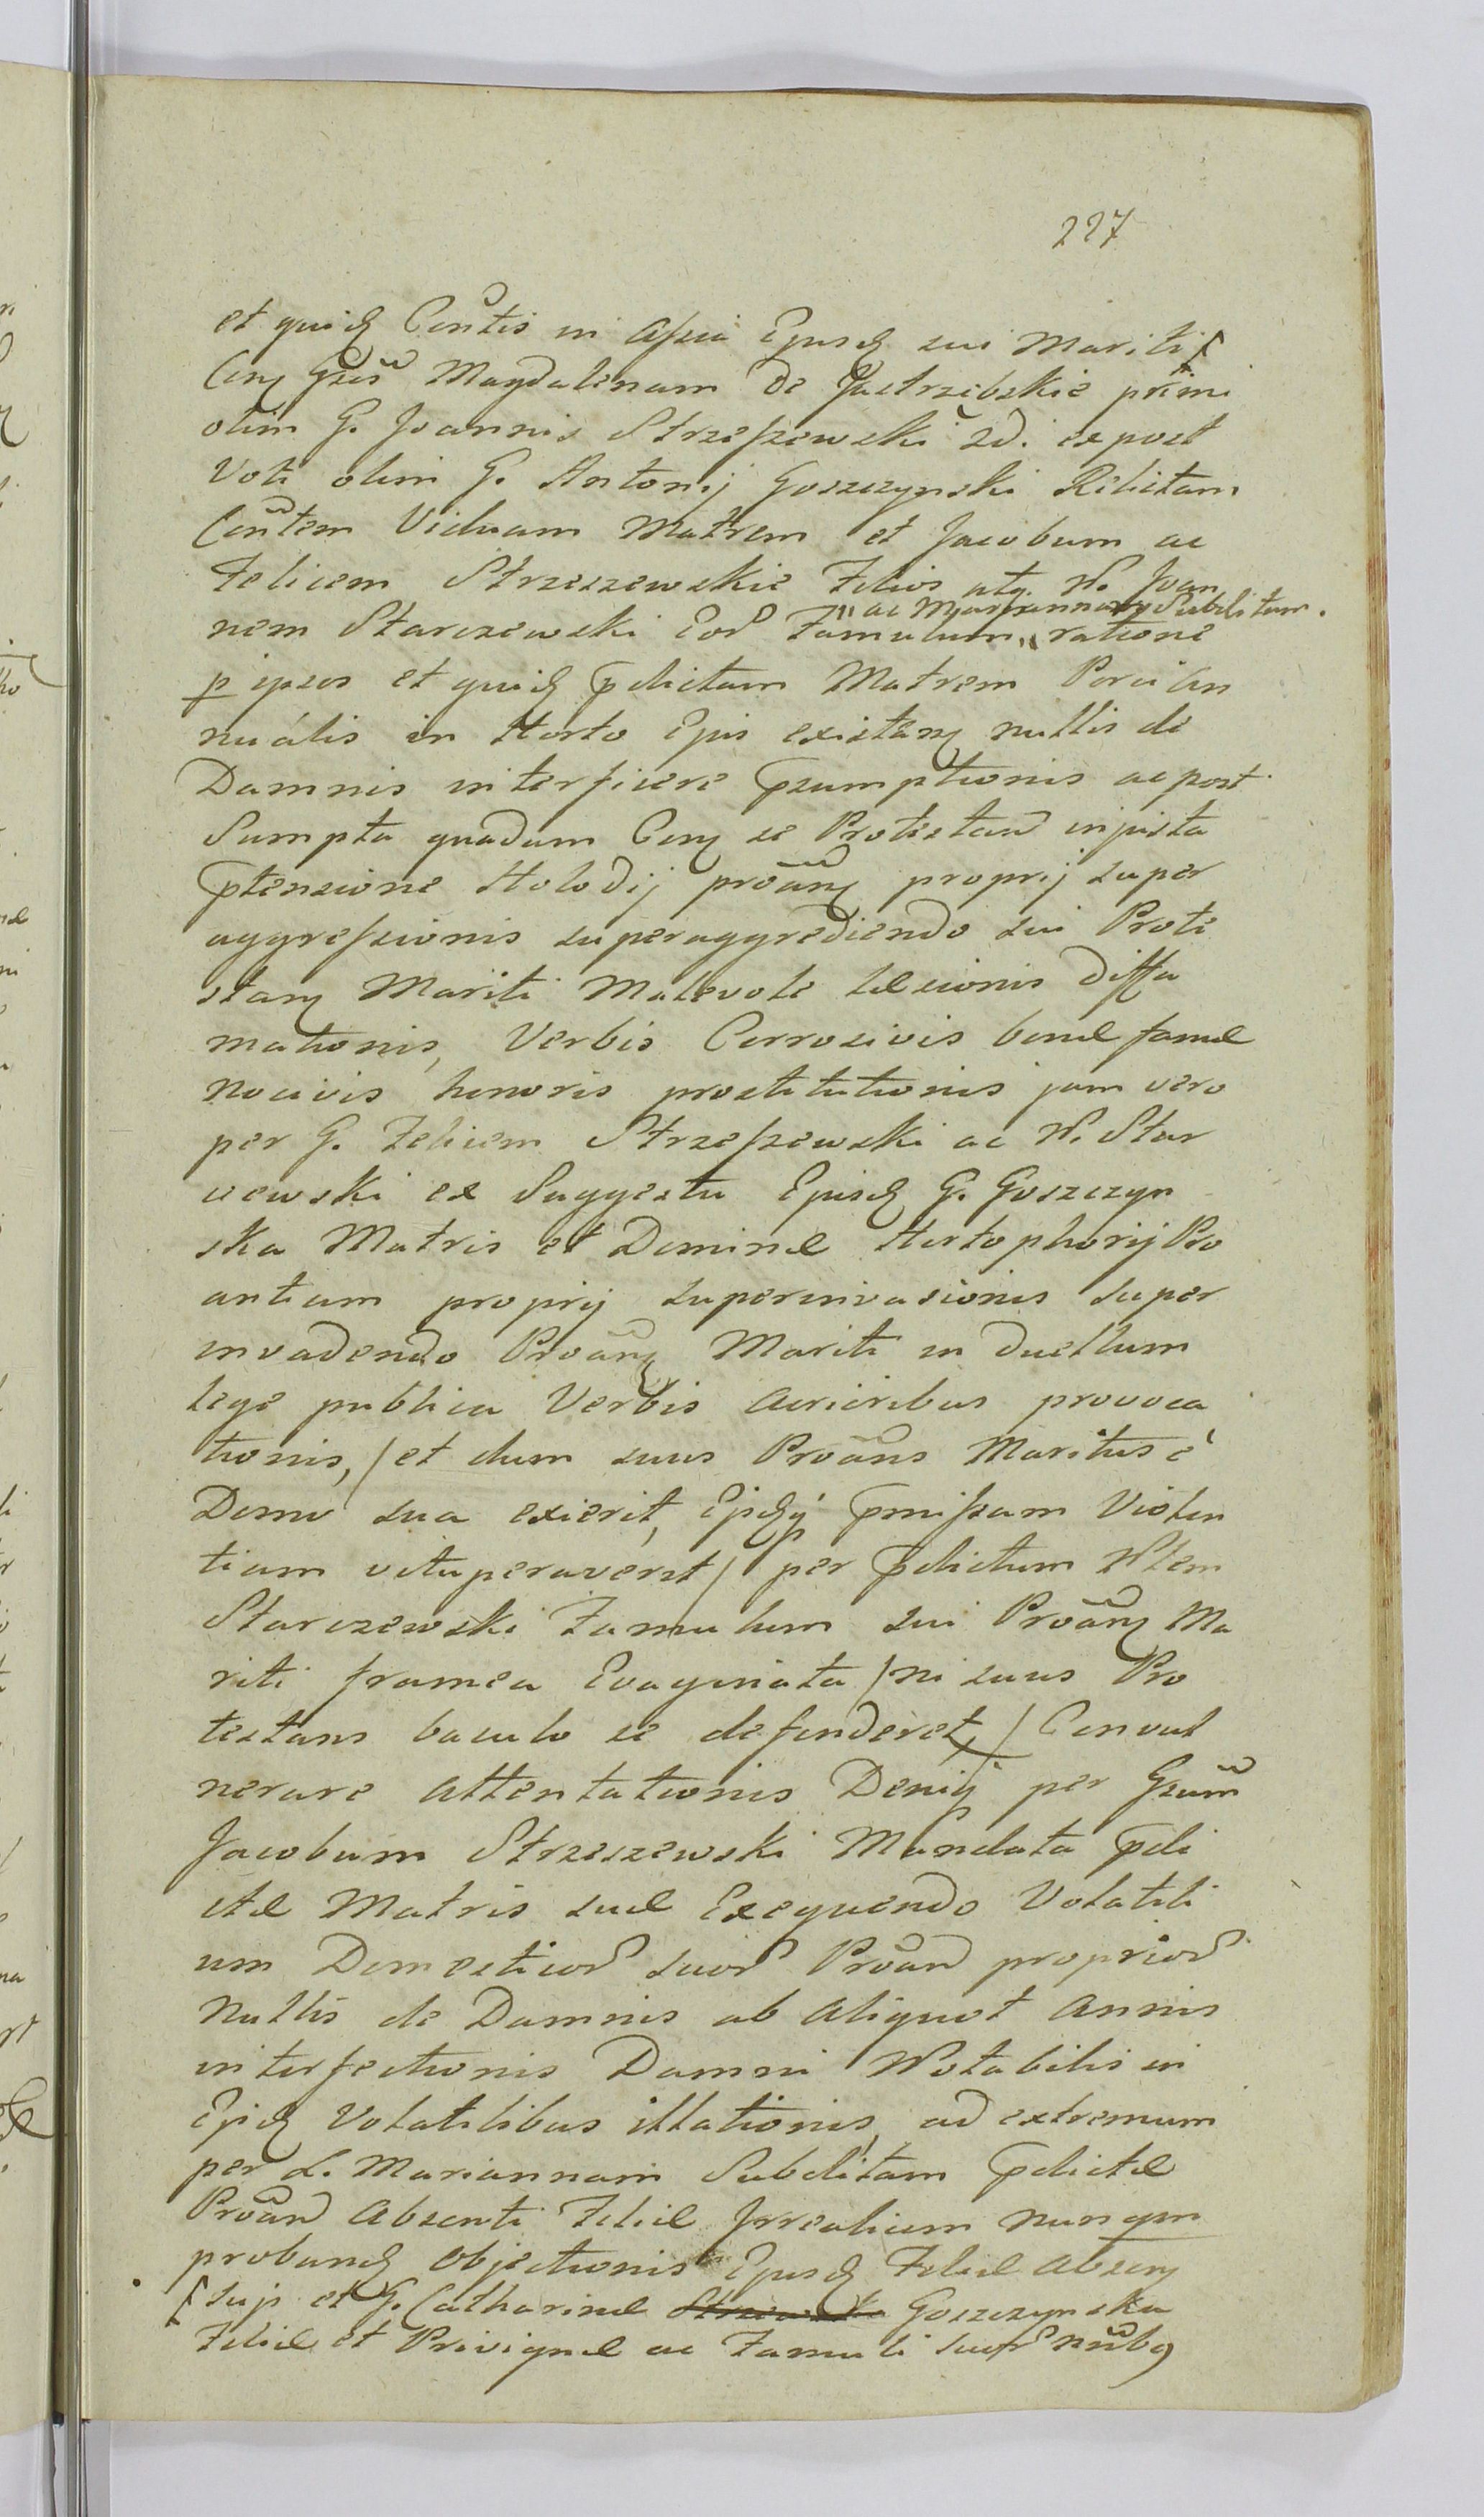 227
et quidꝫ Contis in Assia Ejusdꝫ sui Mariti
Conꝫ Gsas Magdalenam de Jastrzebskie primi
olim G. Joannis Strzeszewski 2di expost
Voti olim G. Antonij Goszczynski Relictam
Contem Viduam Matrem et Jacobum ac
Felicem Strzeszewskie Filios atq. N. Joan
"ac Mariannam Subditam.
nem Starczewski Eor Famulum " ratione
p ipsos et quidꝫ pdictam Matrem Porci An
nuális in Horto Epis existenꝫ nullis de
Damnis interficere psumptionis ac post
Sumpta quadam Conꝫ se Protestan injusta
ptensione Holodij proanꝫ proprij super
aggressionis superaggrediendo sui Prote
stanꝫ Mariti Malevole lesionis diffa
mationis, Verbis Corrosivis bonæ famæ
nocivis honoris prostitutionis jam vero
per G. Felicem Strzeszewski ac N. Star
czewski ex Suggestu Ejusdꝫ G. Goszczyn
ska Matris et Dominæ Hortophorij Pro
antium proprij superinvasionis super
invadendo Proanꝫ Mariti in duellum
lege publica Verbis acrioribus provoca
tionis, / et dum suus Proans Maritus è
Domo sua exierit, Ejsdꝫ pmissam Violen
tiam vituperaverit / per pdictum Nlem
Starczewski Famulum sui Proanꝫ Ma
riti framea Evaginata / ni suus Pro
testans baculo se defenderet, / Convul
nerare attentationis Deniq per Gsum
Jacobum Strzeszewski Mandata pdi
ctæ Matris suæ Exequendo Volatili
um Domesticor suor Proan proprior
Nullis de Damnis ab aliquot annis
interfectionis Damni Notabilis in
Ejsdꝫ Volatilibus illationis, ad extremum
per L. Mariannam Subditam pdictæ
Proan Absenti Filiæ Irrealium nunqm
probandꝫ Objectionis Ejusdꝫ Filiæ absenꝫ
sup et G. Catharinæ Goszczynska
Filiæ et Privignæ ac Famuli suor nnibꝫ